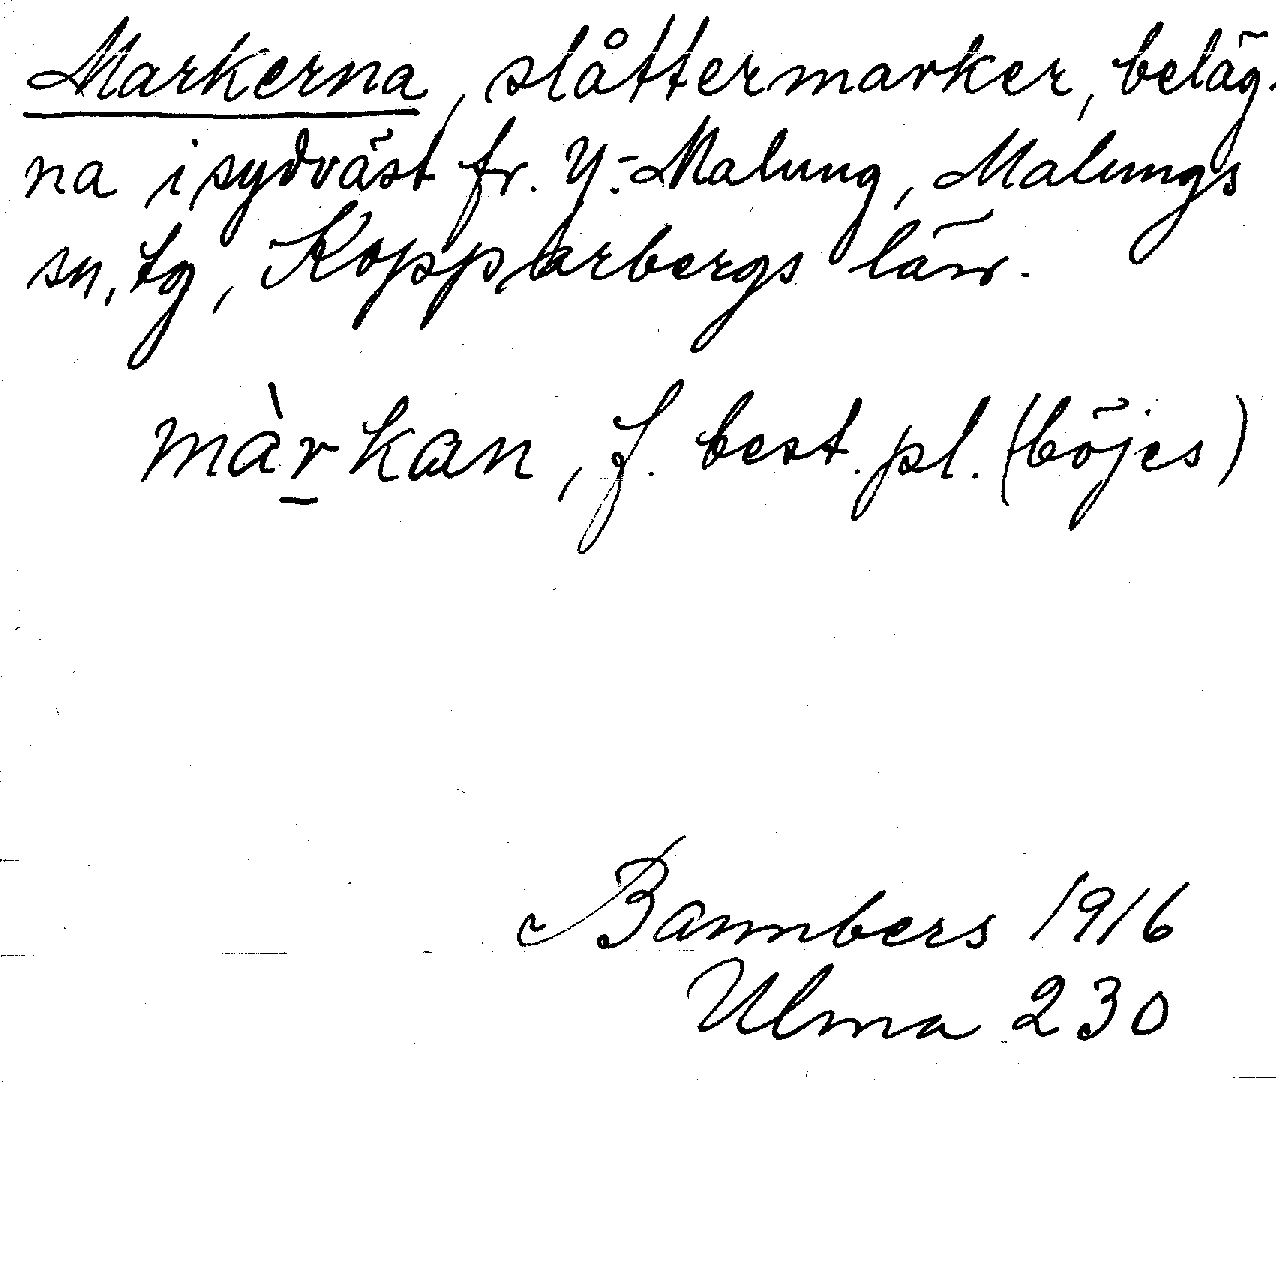 Markerna, slåttermarker, beläg-
na i sydväst fr. Y.-Malung, Malungs
sn, tg, Kopparbergs län.
màr̲kan, f. best. pl. (böjes)
Bannbers 1916
Ulma 230